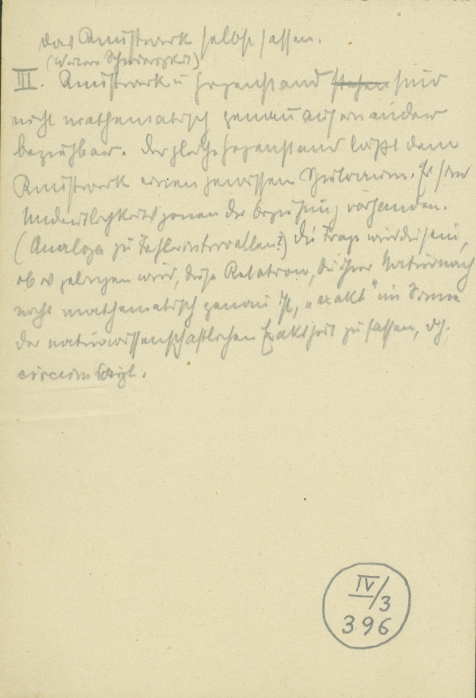 das Kunstwerk selbst fassen.
(Weitere Schwierigkeit)
III. Kunstwerk u Gegenstand stehen sind
nicht mathematisch genau aufeinander
beziehbar. Der gleiche Gegenstand läßt dem
Kunstwerk einen gewissen Spielraum. Es sind
Undeutlichkeitszonen der Beziehung vorhanden.
(Analogie zu Fehlerintervallen?) Die Frage wird sein,
ob es gelingen wird, diese Relation, die ihrer Natur nach
nicht mathematisch genau ist, „exakt" im Sinne
der naturwissenschaftlichen Exaktheit zu fassen, d.h.
IV/3
396